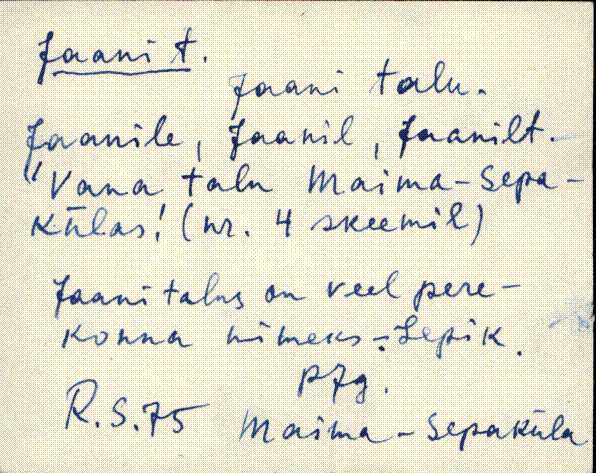 Jaani t.
Jaani talu.
Jaanile, Jaanil, Jaanilt.
"Vana talu Maima-Sepa-
külas! (nr. 4 skeemil)
Jaani talus on veel pere-
konna nimeks - Sepik.
R.S.75 Maima-Sepaküla